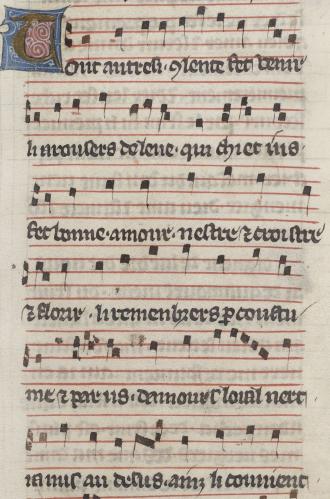 Tout autresi .ꝯ lente fet uenir
li arousers de leue. qui chiet ius.
fet bonne amour. nestre ⁊ croistre
⁊ florir. li remenbrers ꝑ coustu
me ⁊ par us. damours loial nert
ia nus au desus. ainz li couuient